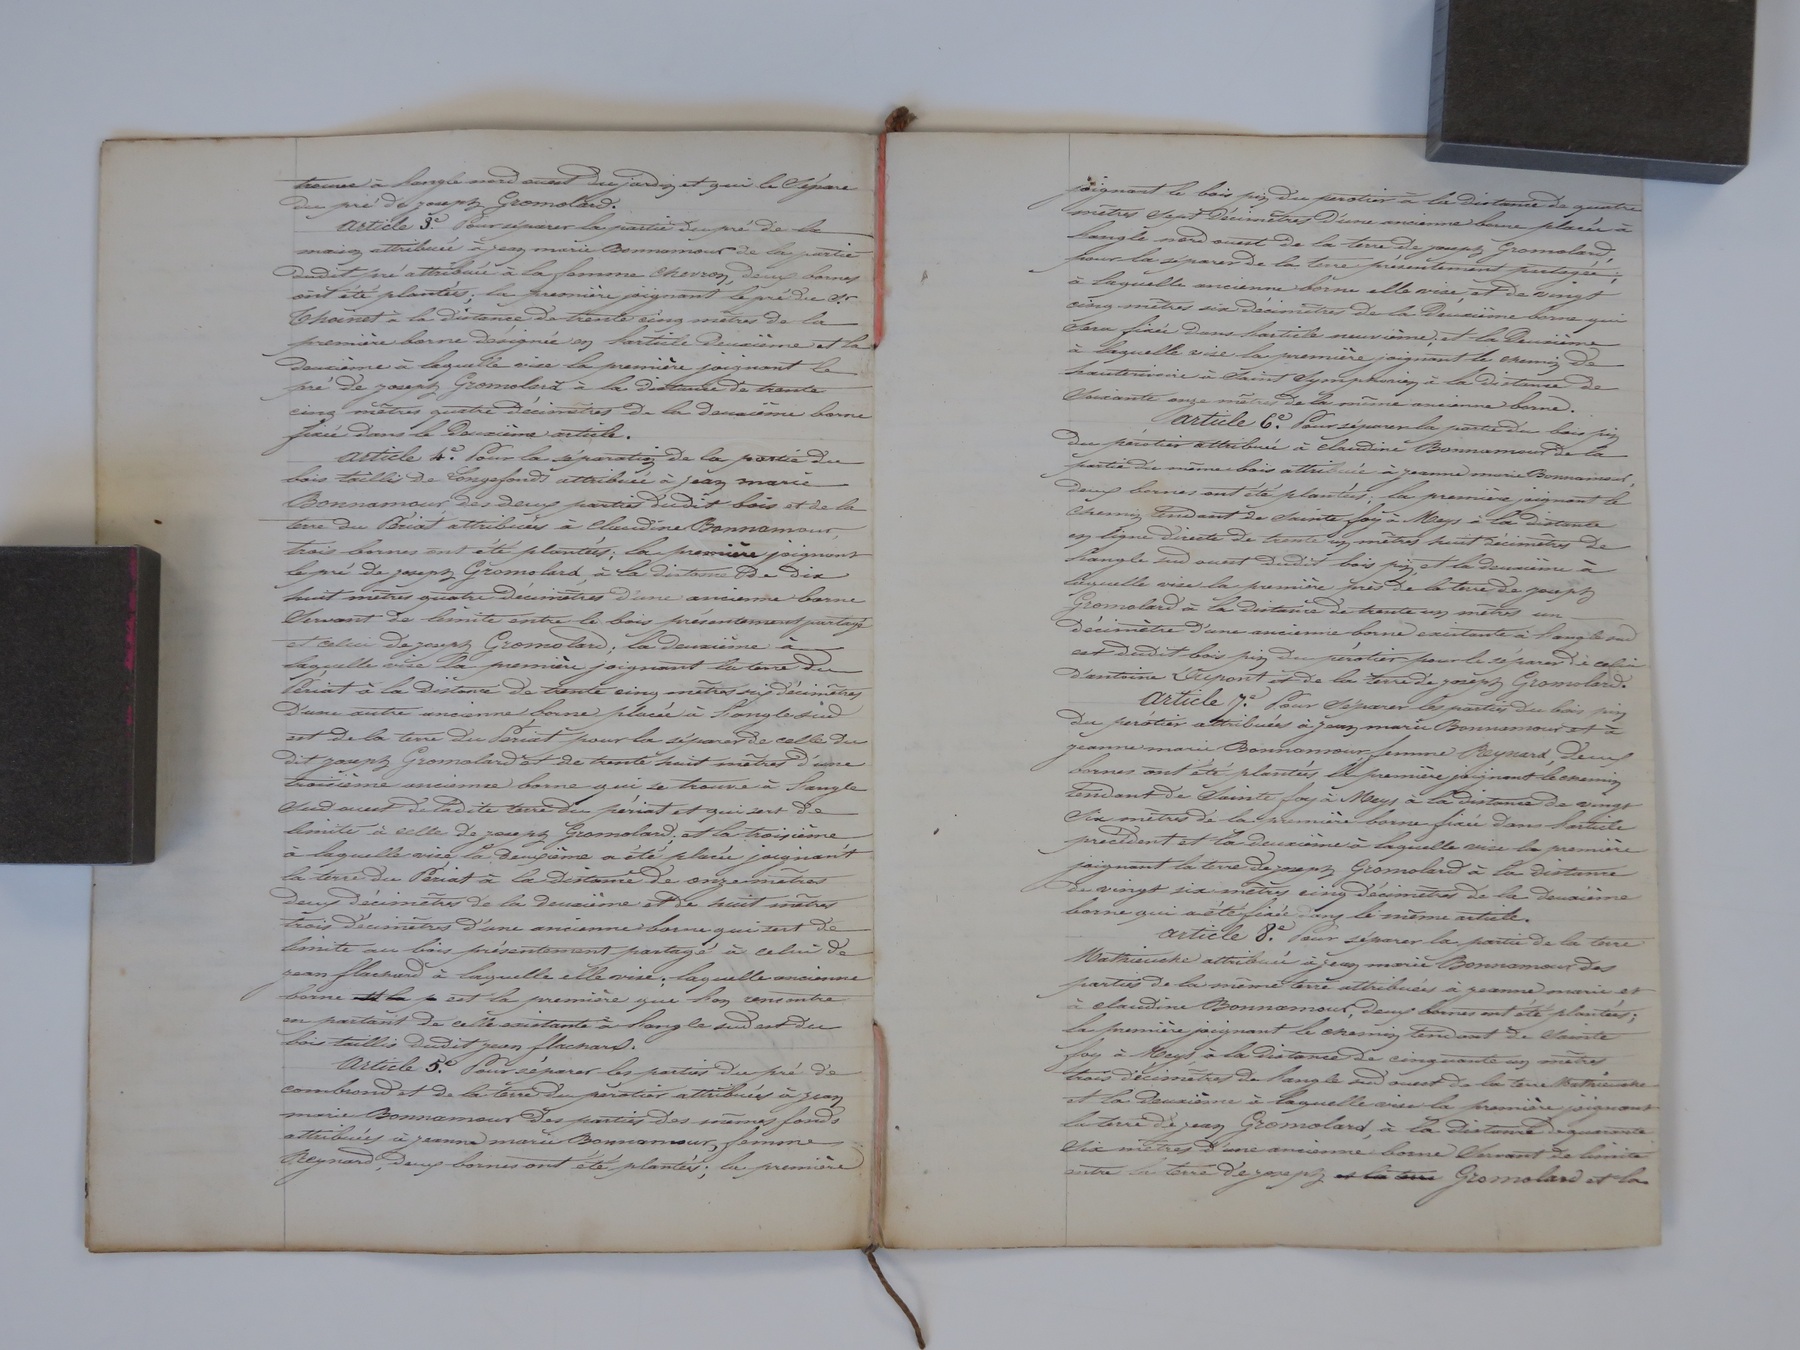 trouve à l'angle nord ouest du jardin et qui le sépare
du pré de joseph Gromolard.
Article 3.e Pour séparer la partie du pré de la
main attribuée à jean marie Bonnamour de la partie
dudit pré attribuée à la femme chevron, deux bornes
ont été plantées; la première joignant le pré du Sr
Thoinet à la distance de trente cinq mètres de la
première borne désignée en l'article deuxième et la
deuxième à laquelle vise la première joignant le
pré de joseph Gromolard à la distance de trente
cinq mètres quatre décimètres de la deuxième borne
fixée dans le Deuxième article.
Article 4.e Pour la séparation de la partie du
bois taillis de Longefond attribuée à jean marie
Bonnamour des deux parties dudit bois et de la
terre du Périat attribuées à claudine Bonnamour,
trois bornes ont été plantées; la première joignant
le pré de joseph Gromolard, à la distance de dix
huit mètres quatre décimètres d'une ancienne borne
servant de limite entre le bois présentement partagé
et celui de joseph Gromolard; la deuxième à
laquelle vise la première joignant la terre du
Périat à la distance de trente cinq mètres six décimètres
d'une autre ancienne borne placée à l'angle sud
est de la terre du Périat pour la séparer de celle du
dit joseph Gromolard et de trente huit mètres d'une
troisième ancienne borne qui se trouve à l'angle
sud ouest de ladite terre du périat et qui sert de
limite à celle de joseph Gromolard, et la troisième
à laquelle vise la deuxième a été placée joignant
la terre du Périat à la distance de onze mètres
deux décimètres de la deuxième et de huit mètres
trois décimètres d'une ancienne borne qui sert de
limite au bois présentement partagé à celui de
jean flachard à laquelle elle vise; laquelle ancienne
borne est la première que l'on rencontre
en partant de celle existante à l'angle sud est du
bois taillis dudit jean flachard.
Article 5.e Pour séparer les parties du pré de
combrond et de la terre du pérotier attribuées à jean
marie Bonnamour des parties des mêmes fonds
attribuées à jeanne marie Bonnamour, femme
Reynard, deux bornes ont été plantées; la première
joignant le bois pin du perotier à la distance de quatre
mètres sept décimètres d'une ancienne borne placée à
l'angle nord ouest de la terre de joseph Gromolard,
pour la séparer de la terre présentement partagée;
à laquelle ancienne borne elle vise, et de vingt
cinq mètres six décimètres de la Deuxième borne qui
sera fixée dans l'article neuvième, et la Deuxième
à laquelle vise la première joignant le chemin de
hauterivoire à Saint Symphorien à la distance de
soixante onze mètres de la même ancienne borne.
Article 6.e Pour séparer la partie du bois pin
du pérotier attribuée à claudine Bonnamour de la
partie du même bois attribuée à jeanne marie Bonnamour,
deux bornes ont été plantées; la première joignant le
chemin tendant de Sainte foy à Meys à la distance
en ligne directe de trente un mètres huit décimètres de
l'angle sud ouest dudit bois pin et la deuxième à
laquelle vise la première près de la terre de joseph
Gromolard à la distance de trente un mètres un
décimètre d'une ancienne borne existante à l'angle sud
est dudit bois pin du pérotier pour le séparer de celui
d'antoine Dupont et de la terre de joseph Gromolard.
Article 7.e Pour séparer les parties du bois pin
du perotier attribuées à jean marie Bonnamour et à
jeanne marie Bonnamour, femme Reynard, deux
bornes ont été plantées la première joignant le chemin
tendant de Sainte foy à Meys à la distance de vingt
six mètres de la première borne fixée dans l'article
précédent et la deuxième à laquelle vise la première
joignant la terre de joseph Gromolard à la distance
de vingt six mètres cinq décimètres de la deuxième
borne qui a été fixée dans le même article.
Article 8.e Pour séparer la partie de la terre
Mathieuche attribuée à jean marie Bonnamour des
parties de la même terre attribuées à jeanne marie et
à claudine Bonnamour, deux bornes ont été plantées;
la première joignant le chemin tendant de Sainte
foy à Meys à la distance de cinquante un mètres
trois décimètres de l'angle sud ouest de la terre Mathieuche
et la deuxième à laquelle vise la première joignant
la terre de jean Gromolard, à la distance de quarante
six mètres d'une ancienne borne servant de limite
entre la terre de joseph et la terre Gromolard et la